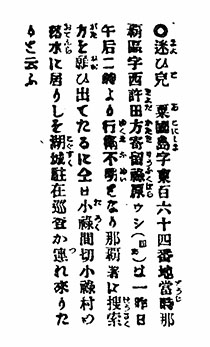 ◎迷ひ兒　粟國島字東百六十四番地當時那
覇區字西許田方寄留藤原ウシ（四）は一昨日
午后二時より行衛不明となり那覇署に搜索
方を願ひ出てたるに仝日小祿間切小祿村の
に居りしを湖城駐在巡査か連れ來りた
りと云ふ